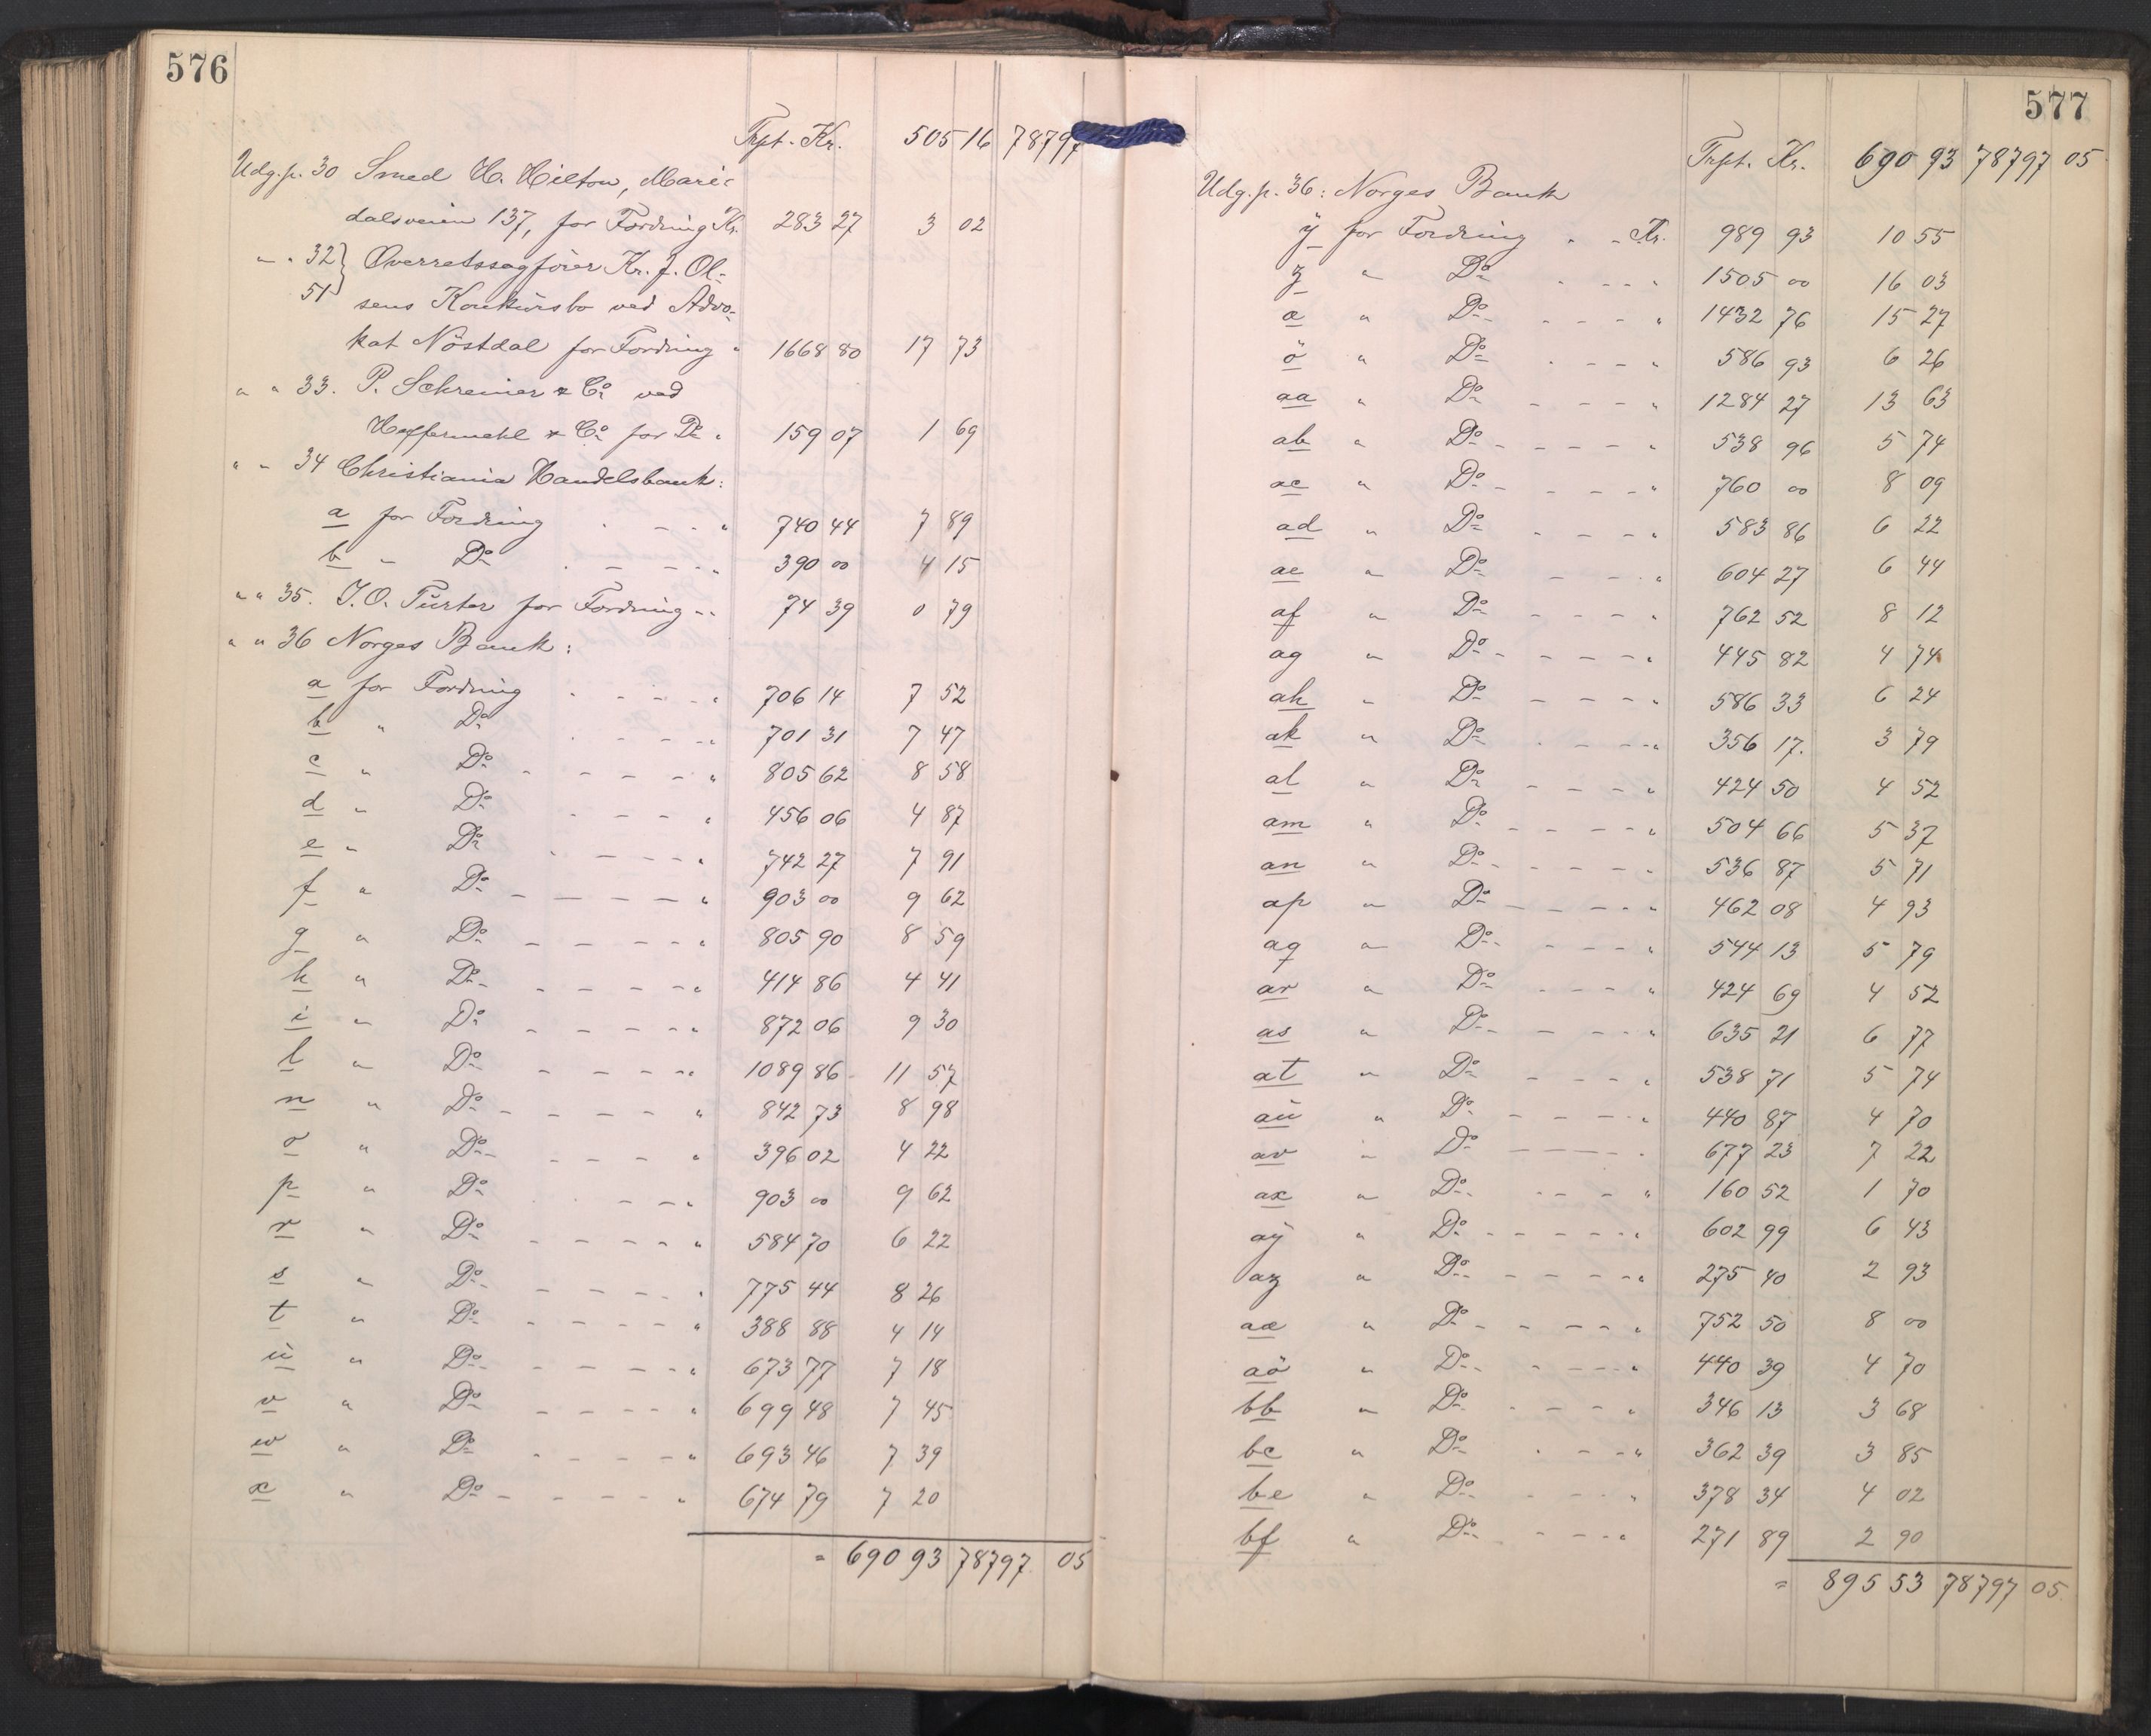 576
Trpt. Kr. 505 16 78797
Udg.p. 30 Smed H. Hilton, Mari-
dalsveien 137, for Fordring Kr. 283 27 3 02
" " 32 } Overretssagfører Kr. J. Ol-
51 } sens Konkursbo ved Advo-
kat Nöstdal for Fordring " 1668 80 17 73
" " 33. P. Schreiner & Co ved
Heffermehl & Co for Do " 159 07 1 69
" " 34 Christiania Handelsbank:
a for Fordring " 740 44 7 89
b " Do " 390 00 4 15
" " 35. J.O. Türter for Fordring " 74 39 0 79
" " 36 Norges Bank:
a for Fordring " 706 14 7 52
b " Do " 701 31 7 47
c " Do " 805 62 8 58
d " Do " 456 06 4 87
e " Do " 742 27 7 91
f " Do " 903 00 9 62
g " Do " 805 90 8 59
h " Do " 414 86 4 41
i " Do " 872 06 9 30
l " Do " 1089 86 11 57
n " Do " 842 73 8 98
o " Do " 396 02 4 22
p " Do " 903 00 9 62
r " Do " 584 70 6 22
s " Do " 775 44 8 26
t " Do " 388 88 4 14
ü " Do " 673 77 7 18
v " Do " 699 48 7 45
w " Do " 693 46 7 39
x " Do " 674 79 7 20
= 690 93 78797 05
577
Trpt. Kr. 690 93 78797 05
Udg.p. 36: Norges Bank
ÿ for Fordring " Kr. 989 93 10 55
z " Do " 1505 00 16 03
æ " Do " 1432 76 15 27
ö " Do " 586 93 6 26
aa " Do " 1284 27 13 63
ab " Do " 538 96 5 74
ac " Do " 760 00 8 09
ad " Do " 583 86 6 22
ae " Do " 604 27 6 44
af " Do " 762 52 8 12
ag " Do " 445 82 4 74
ah " Do " 586 33 6 24
ak " Do " 356 17. 3 79
al " Do " 424 50 4 52
am " Do " 504 66 5 37
an " Do " 536 87 5 71
ap " Do " 462 08 4 93
aq " Do " 544 13 5 79
ar " Do " 424 69 4 52
as " Do " 635 21 6 77
at " Do " 538 71 5 74
aü " Do " 440 87 4 70
av " Do " 677 23 7 22
ax " Do " 160 52 1 70
aÿ " Do " 602 99 6 43
az " Do " 275 40 2 93
aæ " Do " 752 50 8 00
aö " Do " 440 39 4 70
bb " Do " 346 13 3 68
bc " Do " 362 39 3 85
be " Do " 378 34 4 02
bf " Do " 271 89 2 90
= 895 53 78797 05